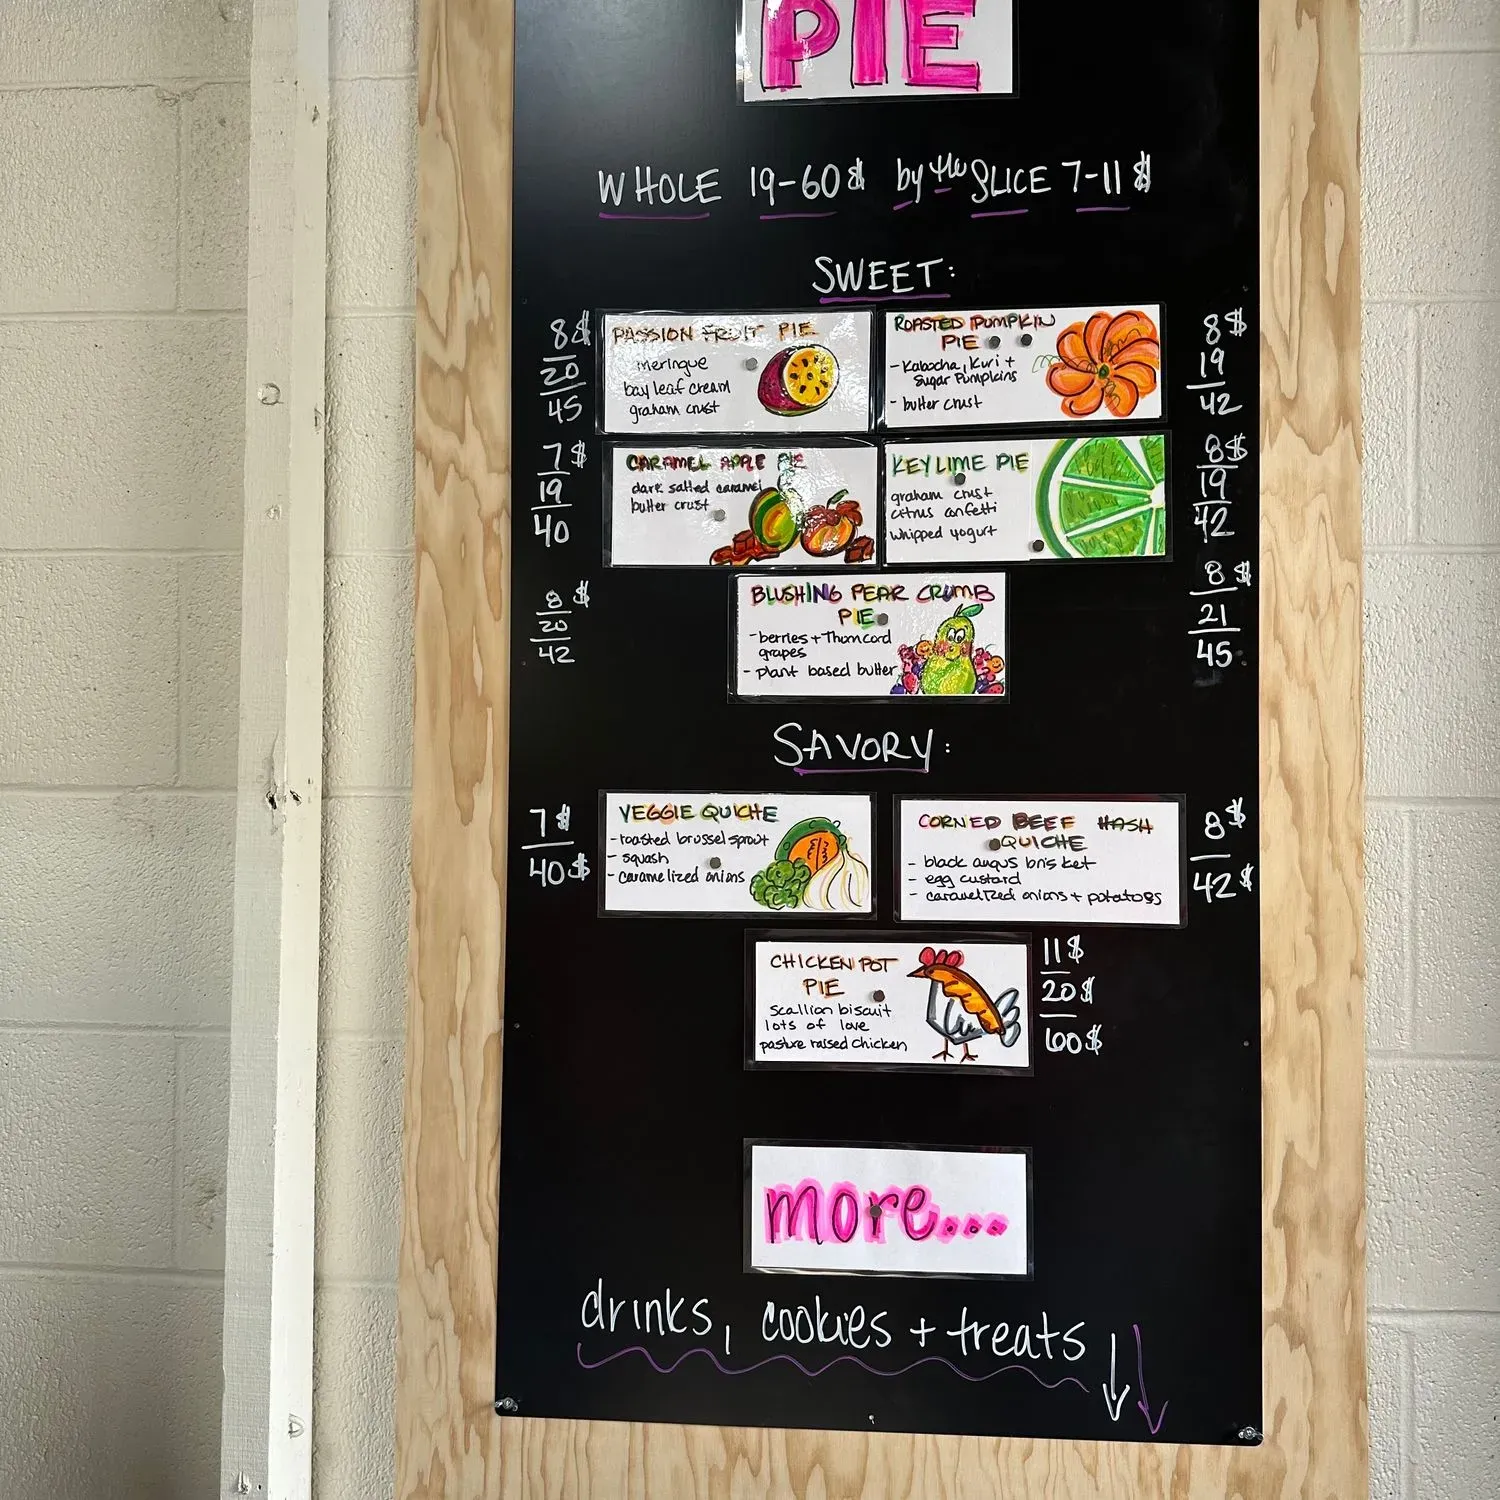 PIE
WHOLE 19-60$ by the SLICE 7-11$
SWEET:
8$
20
45
PASSION FRUIT PIE
meringue
bay leaf cream
graham crust
ROASTED PUMPKIN
PIE
- Kabocha, Kuri +
Sugar Pumpkins
- butter crust
8$
19
42
7$
19
40
CARAMEL APPLE PIE
dark salted caramel
butter crust
KEY LIME PIE
graham crust
citrus confetti
whipped yogurt
8$
19
42
8$
20
42
BLUSHING PEAR CRUMB
PIE
- berries + Thomcord
grapes
- plant based butter
8$
21
45
SAVORY:
7$
40$
VEGGIE QUICHE
- roasted brussel sprout
- squash
- caramelized onions
CORNED BEEF HASH
QUICHE
- black angus brisket
- egg custard
- caramelized onions + potatoes
8$
42$
CHICKEN POT
PIE
scallion biscuit
lots of love
pasture raised chicken
11$
20$
60$
more...
drinks, cookies + treats